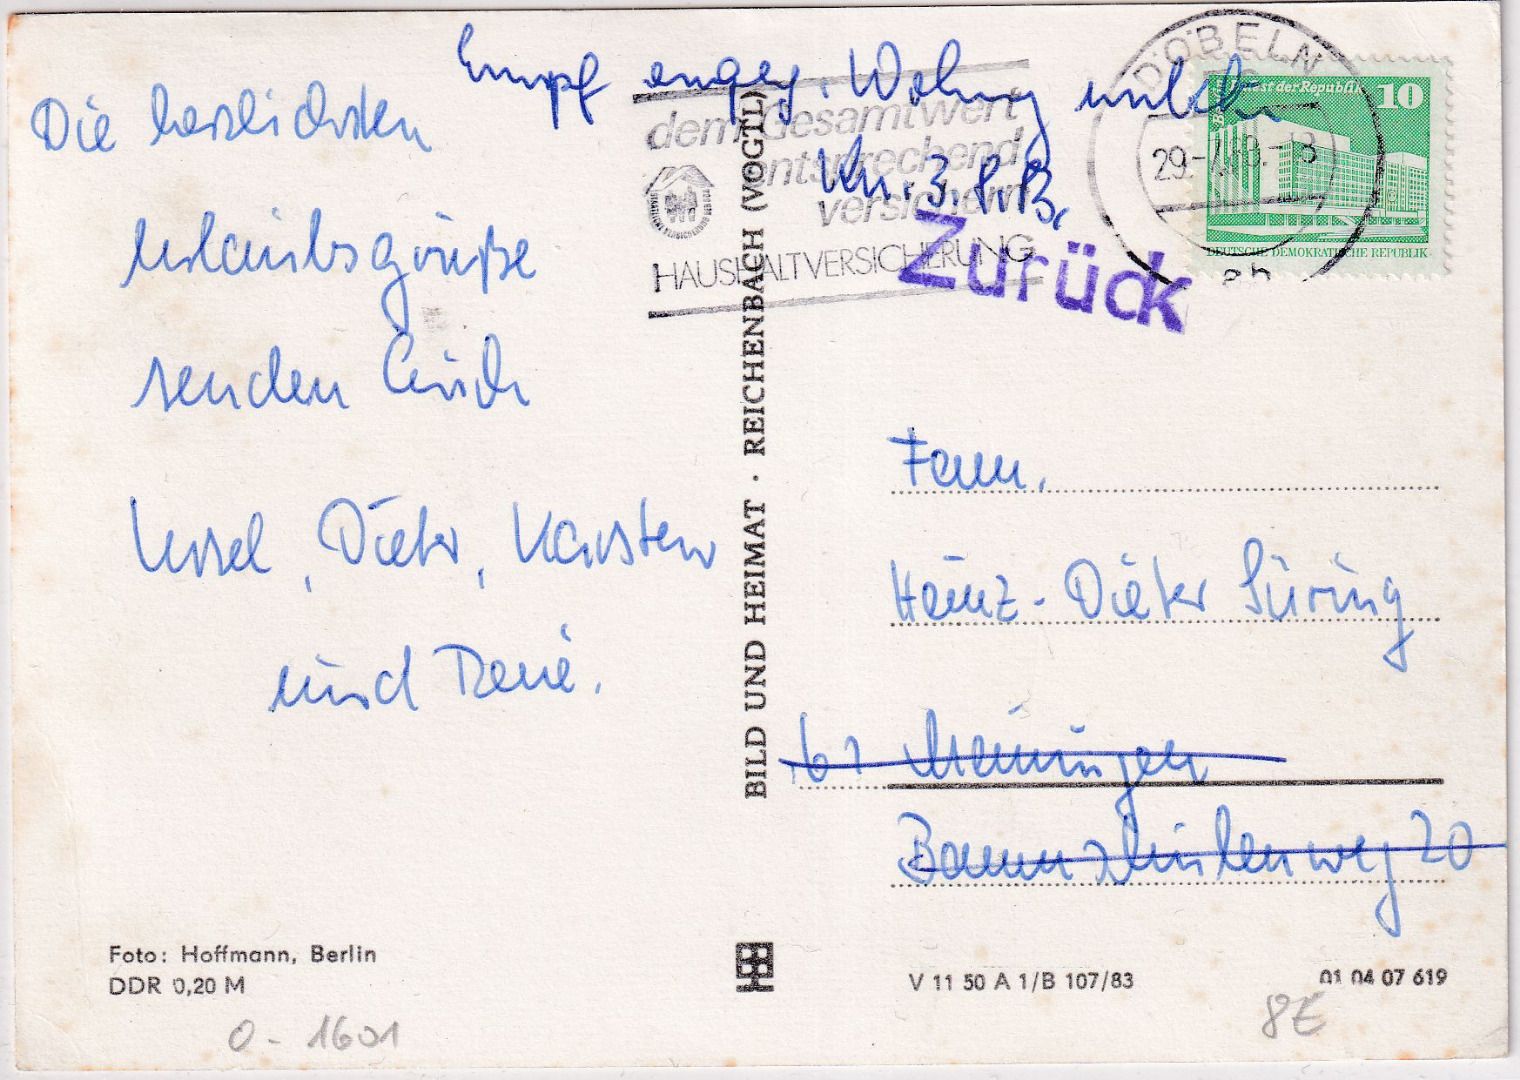 Empf angez. Wohng
Die herzlichsten
Urlaubsgrüße
senden Euch
Ursel, Dieter, Karsten
und René.
dem Gesamtwert
entsprechend
versichern
HAUSHALTVERSICHERUNG
DÖBELN
10
DEUTSCHE DEMOKRATISCHE REPUBLIK
Zurück
BILD UND HEIMAT · REICHENBACH (VOGTL)
Fam.
Heinz-Dieter Süring
61 Meiningen
Baumschulenweg 20
Foto: Hoffmann, Berlin
DDR 0,20 M
V 11 50 A 1/B 107/83
01 04 07 619
0-1601
8E